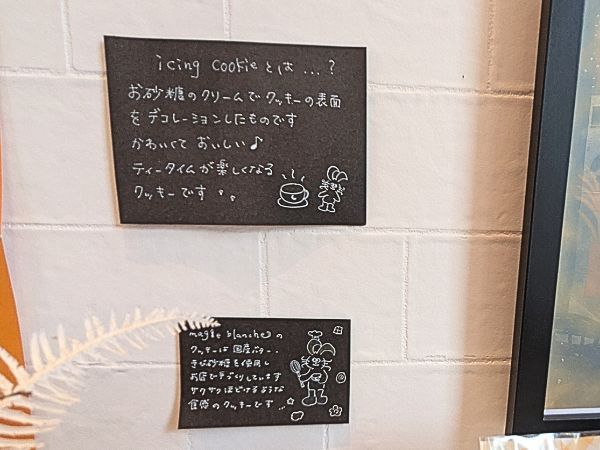 icing cookieとは…?
お砂糖のクリームでクッキーの表面
をデコレーションしたものです
かわいくておいしい♪
ティータイムが楽しくなる
クッキーです。。
magie blancheの
クッキーは国産バター、
きび砂糖を使用し
お店で手づくりしています
サクサクほどけるような
食感のクッキーです…